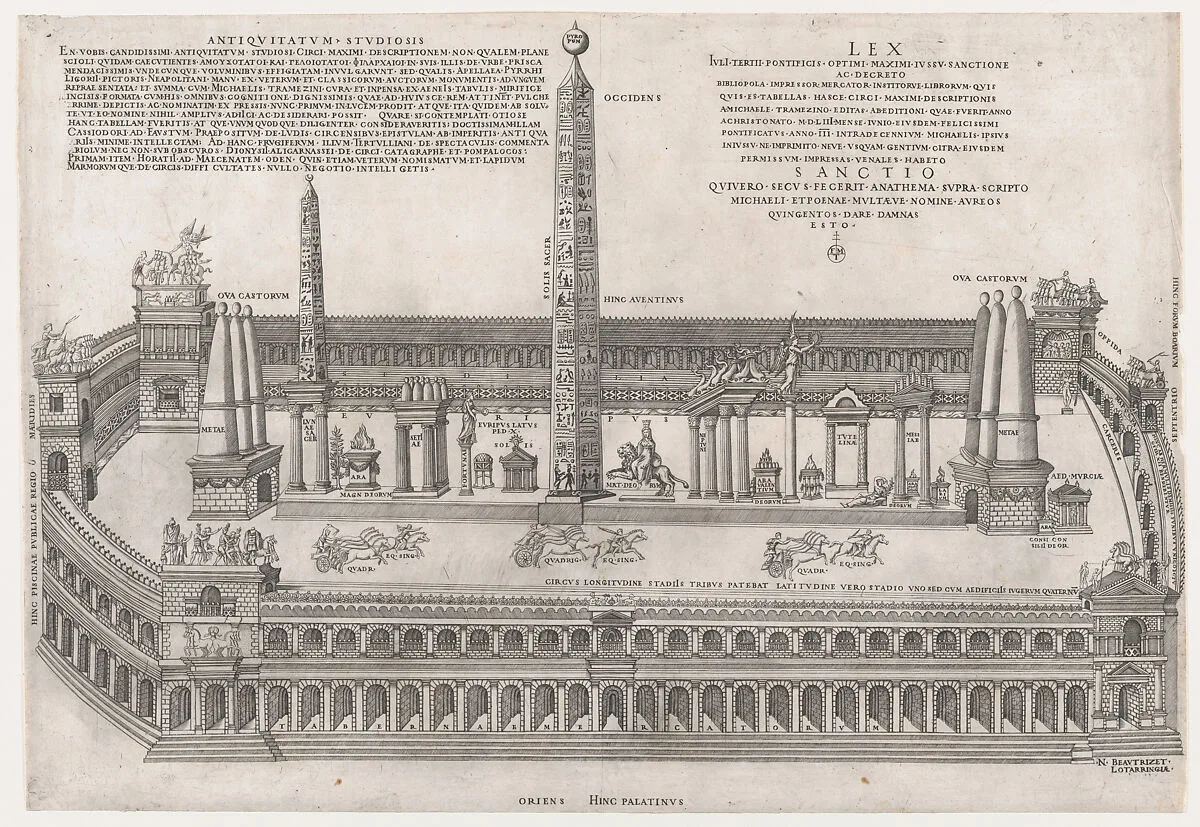 ANTIQVITATVM STVDIOSIS
EN VOBIS CANDIDISSIMI ANTIQVITATVM STVDIOSI CIRCI MAXIMI DESCRIPTIONEM NON QVALEM PLANE
SCIOLI QVIDAM CAECVTIENTES IN SVIS ILLIS DE VRBE PRISCA
MENDACISSIMIS VNDECVNQVE VOLVMINIBVS EFFIGIATAM INVVLGARVNT SED QVALIS APELLAEA PYRRHI
LIGORII PICTORIS NEAPOLITANI MANV EX VETERVM ET CLASSICORVM AVCTORVM MONVMENTIS AD VNGVEM
REPRAESENTATA ET SVMMA CVM MICHAELIS TRAMEZINI CVRA ET INPENSA EX AENEIS TABVLIS MIRIFICE
INCISIS FORMATA CVM HIS OMNIBVS COGNITIONE DIGNISSIMIS QVAE AD HVIVSCE REM ATTINET PVLCHE
RRIME DEPICTIS AC NOMINATIM EXPRESSIS NVNC PRIMVM IN LVCEM PRODIT ATQVE ITA QVIDEM ABSOLV
TE VT EO NOMINE NIHIL AMPLIVS ADIICI AC DESIDERARI POSSIT QVARE SI CONTEMPLATI OTIOSE
HANC TABELLAM FVERITIS AT QVE VNVM QVODQVE DILIGENTER CONSIDERAVERITIS DOCTISSIMAM ILLAM
CASSIODORI AD FAVSTVM PRAEPOSITVM DE LVDIS CIRCENSIBVS EPISTVLAM AB IMPERITIS ANTIQVA
RIIS MINIME INTELLECTAM AD HANC FRVGIFERVM ILLVM TERTVLLIANI DE SPECTACVLIS COMMENTA
RIOLVM NEC NON SVBOBSCVROS DIONYSII ALICARNASSEI DE CIRCI CATAGRAPHE ET POMPA LOCOS
PRIMAM ITEM HORATII AD MAECENATEM ODEN QVIN ETIAM VETERVM NOMISMATVM ET LAPIDVM
MARMORVMQVE DE CIRCIS DIFFICVLTATES NVLLO NEGOTIO INTELLIGETIS
PYRO
PVM
LEX
IVLI TERTII PONTIFICIS OPTIMI MAXIMI IVSSV SANCTIONE
AC DECRETO
BIBLIOPOLA IMPRESSOR MERCATOR INSTITORVE LIBRORVM QVIS
QVIS ES TABELLAS HASCE CIRCI MAXIMI DESCRIPTIONIS
A MICHAELE TRAMEZINO EDITAS AB EDITIONI QVAE FVERIT ANNO
A CHRISTO NATO M D LIII MENSE IVNIO EIVSDEM FELICISSIMI
PONTIFICATVS ANNO IIII INTRA DECENNIVM MICHAELIS IPSIVS
INIVSSV NE IMPRIMITO NEVE VSQVAM GENTIVM CITRA EIVSDEM
PERMISSVM IMPRESSAS VENALES HABETO
SANCTIO
QVIVERO SECVS FECERIT ANATHEMA SVPRA SCRIPTO
MICHAELI ET POENAE MVLTÆVE NOMINE AVREOS
QVINGENTOS DARE DAMNAS
ESTO
OCCIDENS
SOLIS SACER
HINC AVENTINVS
OVA CASTORVM
OVA CASTORVM
OPPIDA
HINC FORVM BOARIVM
SEPTENTRIO
CARCERES
MARIDIES
HINC PISCINAE PVBLICAE REGIO
METAE
LVN
AE SA
CER
EV RI PVS
ARA
MAGN DEORVM
SETI
AE
FORTVNAE
EVRIPVS LATVS
PED X
SOLIS
MAT DEO RVM
DEORVM
TVTE
LINAE
MESS
IAE
DEORVM
METAE
AED MVRCIÆ
ARA
CONSI CON
SILI DEOR
QVADR EQ SING
QVADRIG EQ SING
QVADR EQ SING
CIRCVS LONGITVDINE STADIIS TRIBVS PATEBAT LATITVDINE VERO STADIO VNO SED CVM AEDIFICIIS IVGERVM QVATERNV
TABERNAE MERCATORVM
N BEAVTRIZET
LOTARRINGIÆ
ORIENS HINC PALATINVS